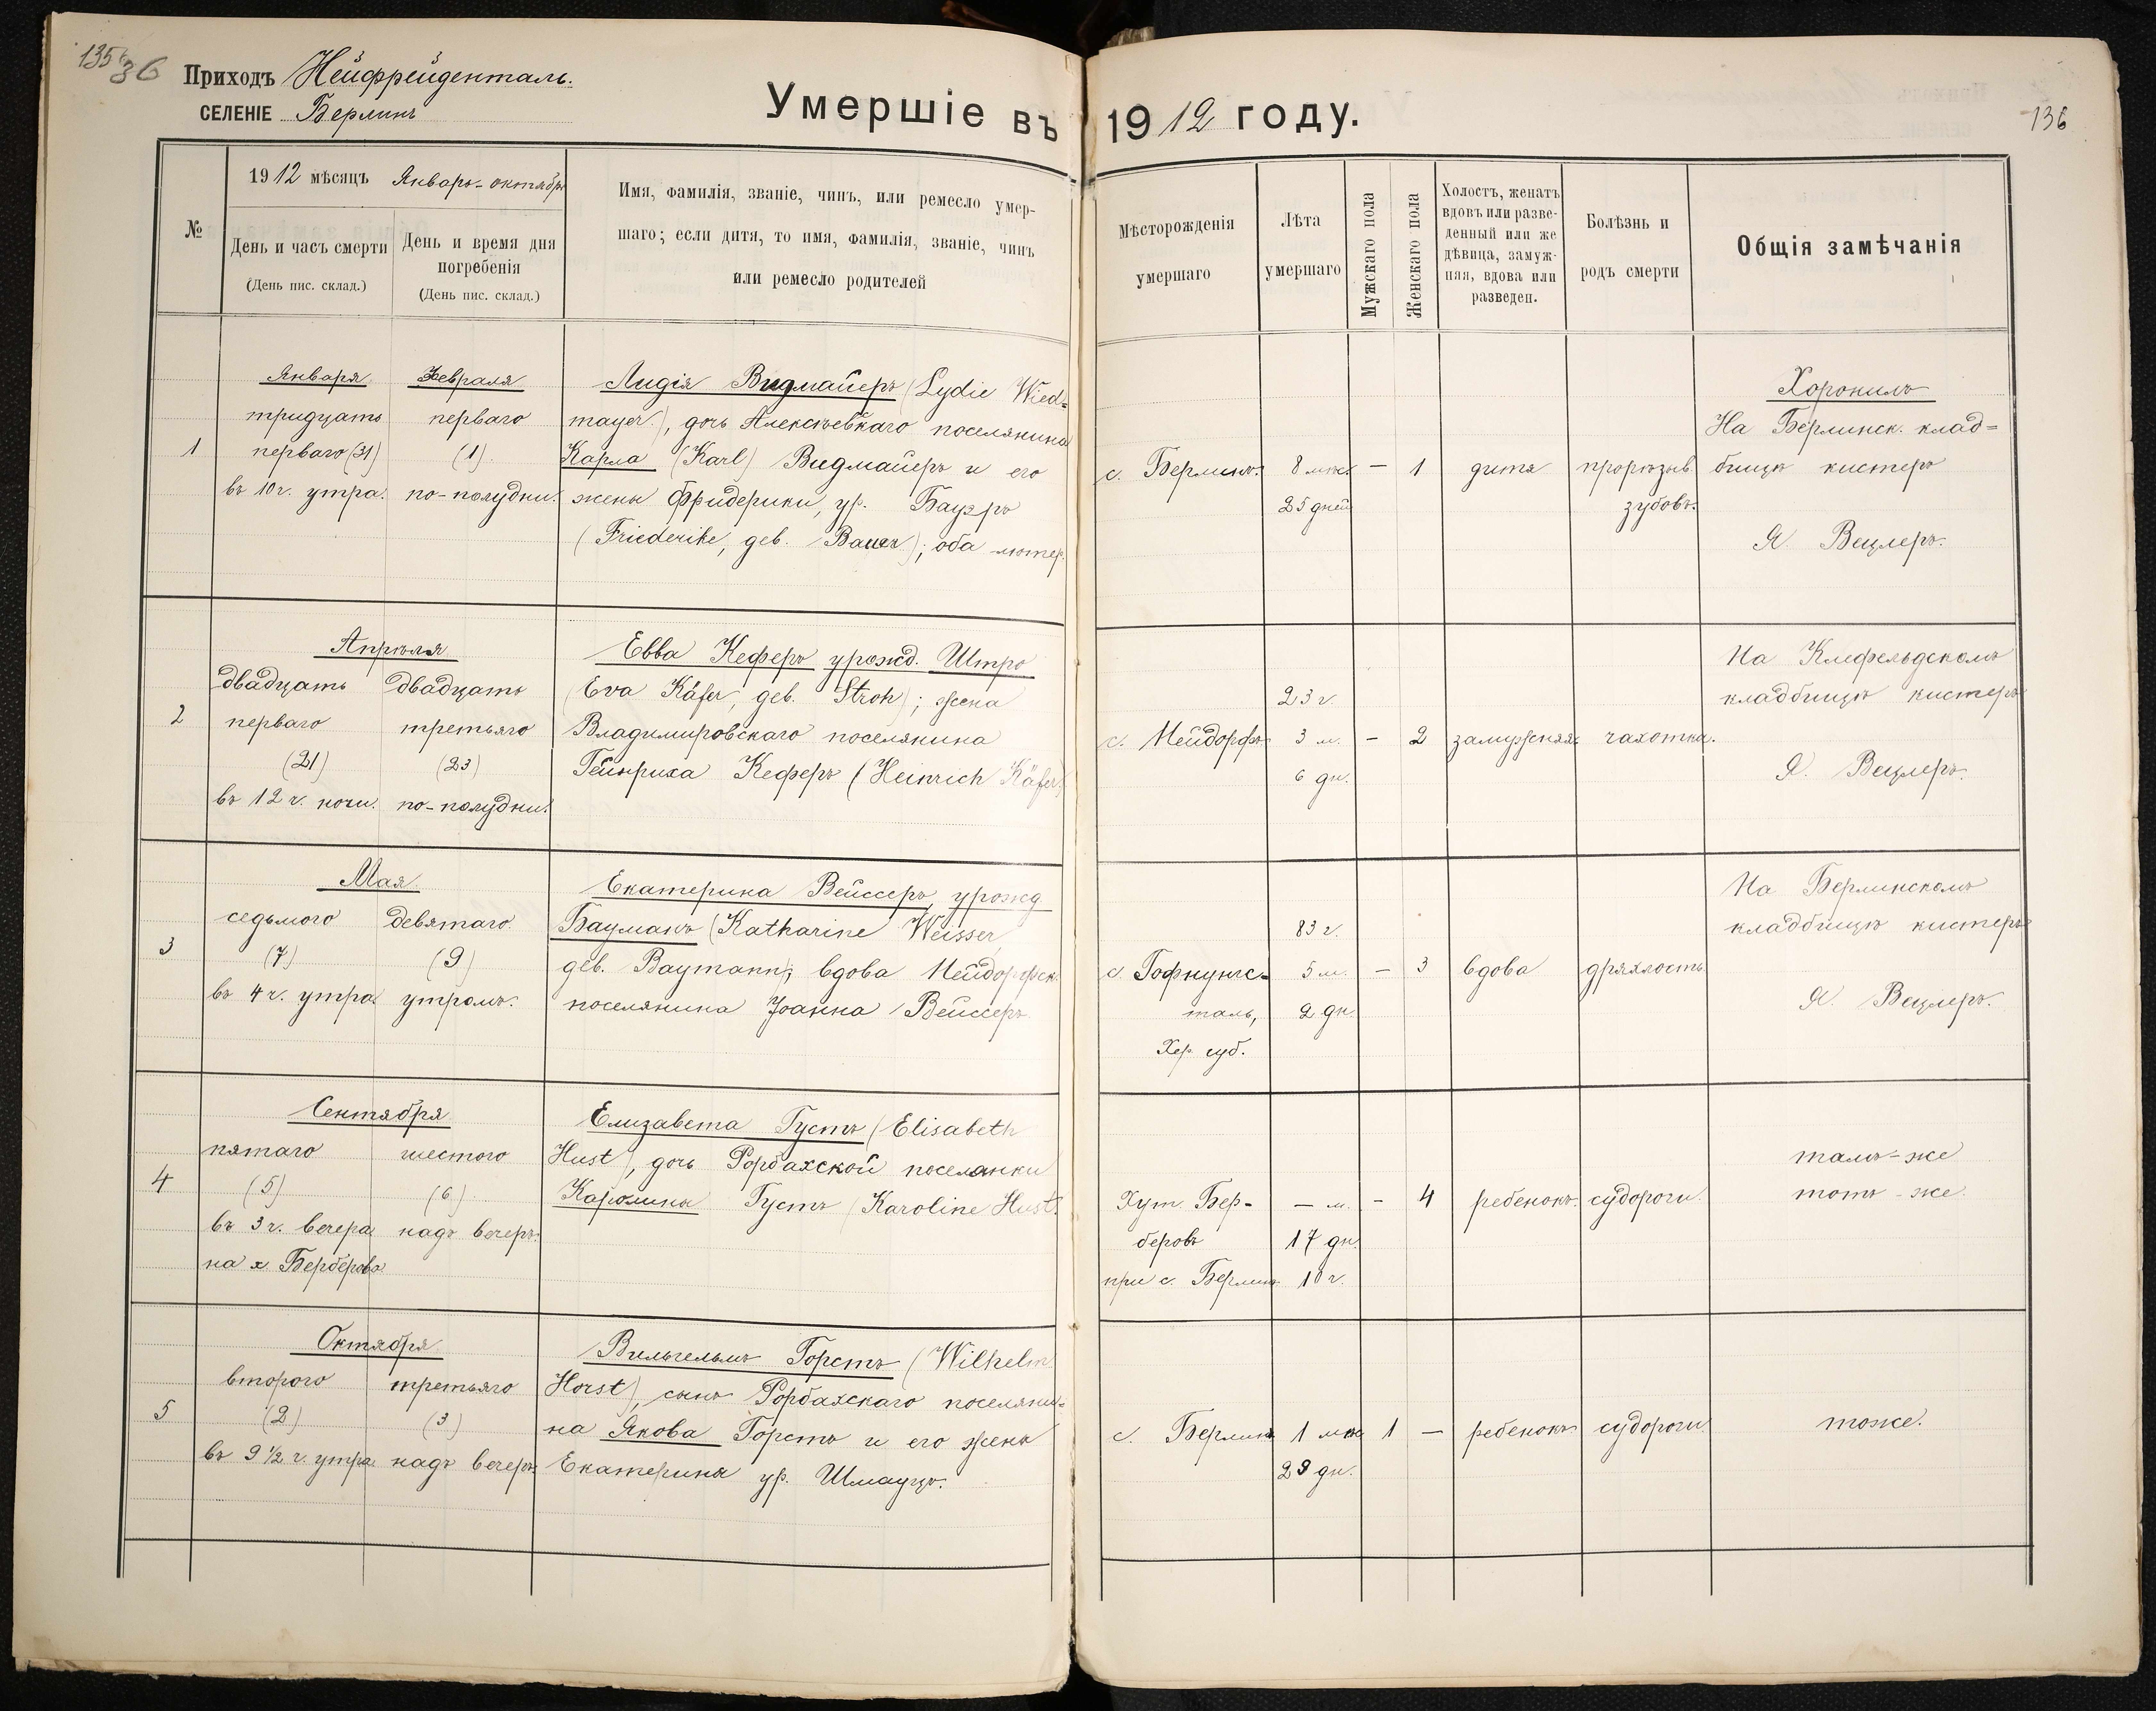 135 36
Приходъ Нейфрейденталь.
СЕЛЕНІЕ Берлинъ
Умершіе въ 1912 году.
136
№
1912 мѣсяцъ Январь-октябрь
День и часъ смерти
(День пис. склад.)
День и время дня
погребенія
(День пис. склад.)
Имя, фамилія, званіе, чинъ, или ремесло умер-
шаго; если дитя, то имя, фамилія, званіе, чинъ
или ремесло родителей
Мѣсторожденія
умершаго
Лѣта
умершаго
Мужскаго пола
Женскаго пола
Холостъ, женатъ
вдовъ или разве-
денный или же
дѣвица, замуж-
няя, вдова или
разведен.
Болѣзнь и
родъ смерти
Общія замѣчанія
1
Января
тридцать
перваго (31)
въ 10 ч. утра.
Февраля
перваго
(1).
по-полудни.
Лидія Видмайеръ (Lydie Wied=
mayer), дочь Алексѣевскаго поселянина
Карла (Karl) Видмайеръ и его
жены Фридерики, ур. Бауэръ
(Friederike, geb. Bauer); оба лютер.
с. Берлинъ.
8 мѣс.
25 дней
—
1
дитя
прорѣзыв
зубовъ.
Хоронилъ
На Берлинск. клад=
бищѣ кистеръ
Я. Вецлеръ.
2
Апрѣля
двадцать
перваго
(21)
въ 12 ч. ночи.
двадцать
третьяго
(23)
по-полудни.
Евва Кеферъ урожд. Штро
(Eva Käfer, geb. Stroh); жена
Владимировскаго поселянина
Гейнриха Кеферъ (Heinrich Käfer)
с. Нейдорфъ
23 г.
3 м.
6 дн.
—
2
замужняя
чахотка.
На Клефельдскомъ
кладбищѣ кистеръ
Я. Вецлеръ.
3
Мая
седьмого
(7)
въ 4 ч. утра
девятаго
(9)
утромъ.
Екатерина Вейссеръ, урожд
Бауманъ (Katharine Weisser,
geb. Baumann); вдова Нейдорфск.
поселянина Іоанна Вейссеръ
с. Гофнунгс=
таль,
Хер. губ.
83 г.
5 м.
2 дн.
—
3
вдова
дряхлость
На Берлинскомъ
кладбищѣ кистеръ
Я. Вецлеръ.
4
Сентября
пятаго
(5)
въ 3 ч. вечера
на х. Берберова
шестого
(6)
надъ вечеръ.
Елизавета Густъ (Elisabeth
Hust), дочь Рорбахской поселянки
Каролины Густъ (Karoline Hust.
Хут. Бер-
беровъ
при с. Берлинъ
— м.
17 дн.
10 ч.
—
4
ребенокъ.
судороги.
тамъ-же
тотъ-же.
5
Октября
второго
(2)
въ 9 1/2 ч. утра
третьяго
(3)
надъ вечеръ.
Вильгельмъ Горстъ (Wilhelm
Horst), сынъ Рорбахскаго поселяни=
на Якова Горстъ и его жены
Екатерины ур. Шмауцъ.
с. Берлинъ
1 мѣс
29 дн.
1
—
ребенокъ
судороги
тоже.